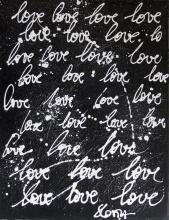 love love love love
love love love love
love love love love
love love love love
love love love love
love love love love
love love love
love love love
love love love